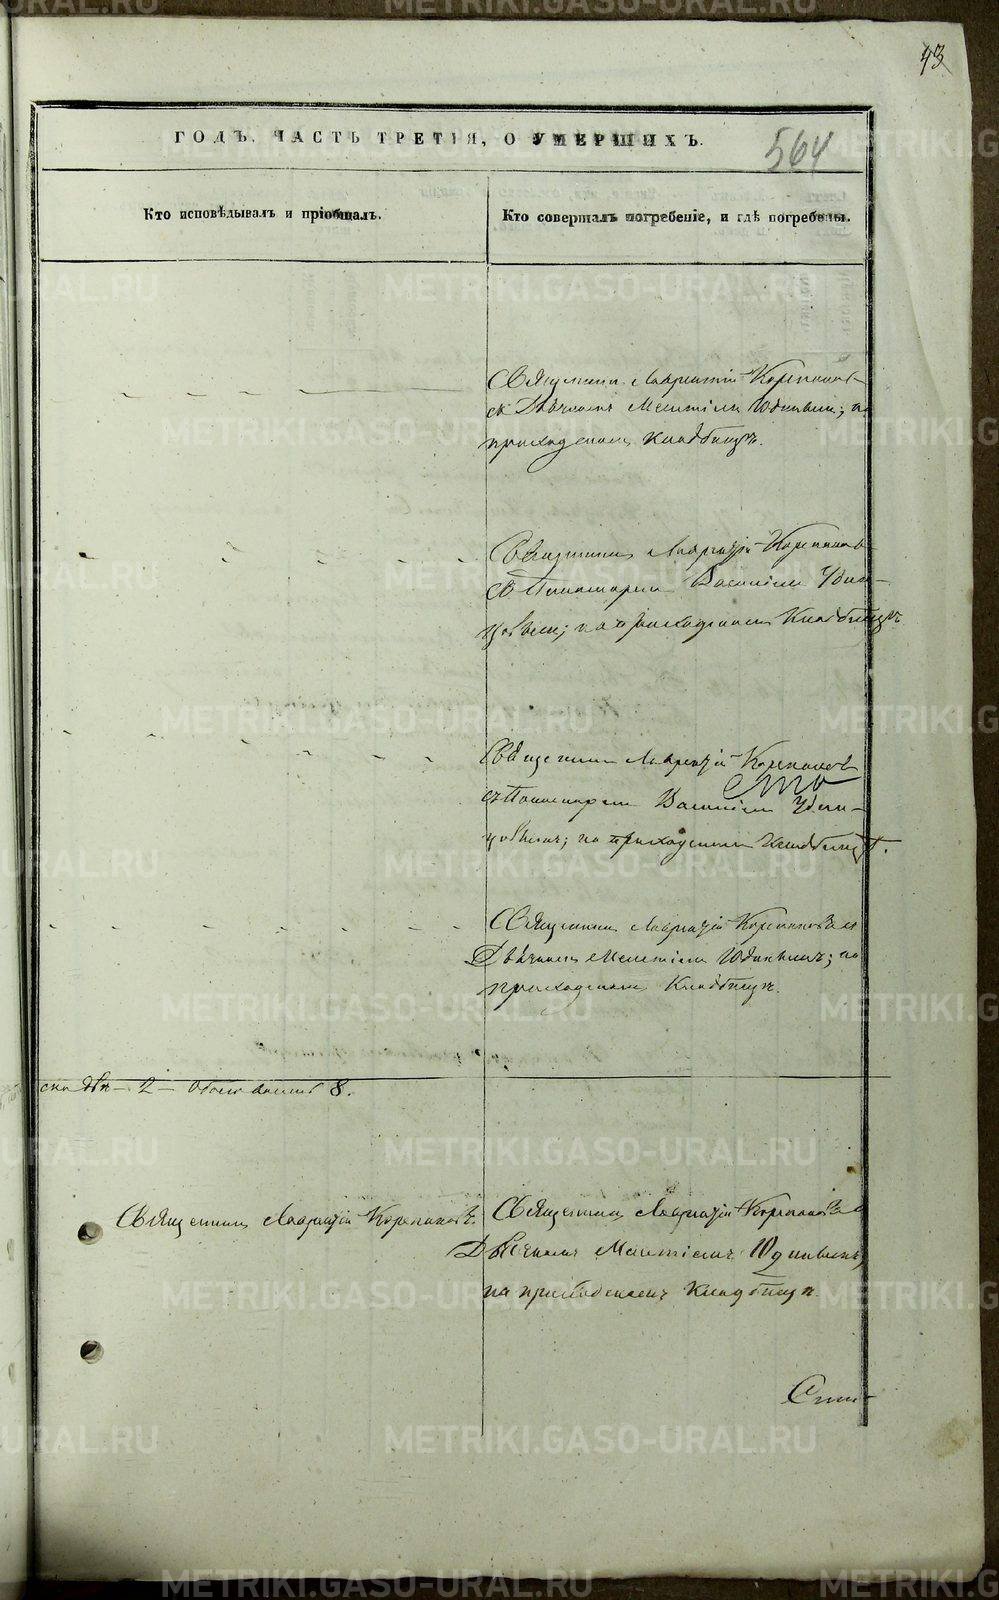 43
ГОДЪ. ЧАСТЬ ТРЕТІЯ, О УМЕРШИХЪ.
564
Кто исповѣдывалъ и пріобщалъ.
Кто совершалъ погребеніе, и гдѣ погребены.
Священникъ Лаврентій Корепановъ
съ Дьячкомъ Мелетіемъ Юдинымъ; на
приходскомъ кладбищѣ.
Священникъ Лаврентій Корепановъ
съ Пономаремъ Василіемъ Удин-
цовымъ; на приходскомъ кладбищѣ
Священникъ Лаврентій Корепановъ
съ Пономаремъ Василіемъ Удин-
цовымъ; на приходскомъ кладбищѣ.
Священникъ Лаврентій Корепановъ съ
Дьячкомъ Мелетіемъ Юдинымъ; на
приходскомъ кладбищѣ.
2 – Обоего 8.
Священникъ Лаврентій Корепановъ.
Священникъ Лаврентій Корепановъ съ
Дьячкомъ Мелетіемъ Юдинымъ,
на приходскомъ кладбищѣ.
METRIKI.GASO-URAL.RU